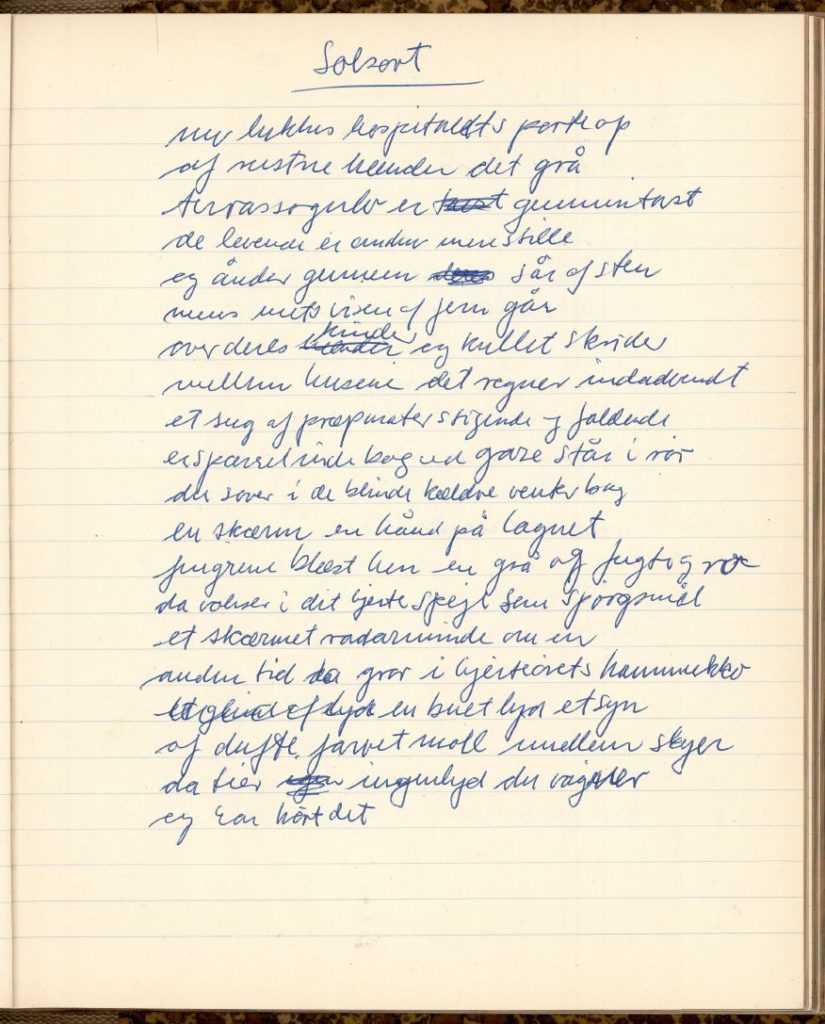 Solsort
nu lukkes hospitalets port op
af rustne hænder det grå
terrassogulv er gummitavst
de levende er endnu mere stille
og ånder gennem sår af sten
mens viseren af jern går
over deres kinder og kullet skrider
mellem husene det regner indadvendt
et sug af præparater stigende og faldende
bag gaze står i rør
du sover i de blinde kældre venter bag
en skærm en hånd på lagnet
fingrene blæst hen en grå af fugt og
da vokser i dit hjerte spejl som spörgsmål
et skærmet radarminde om en
anden tid da gror i hjerteörets hammerekko
et glimt af lyd en buet lyd et syn
af dufte farvet moll imellem skyer
da tier ingenlyd du vågner
og har hört det